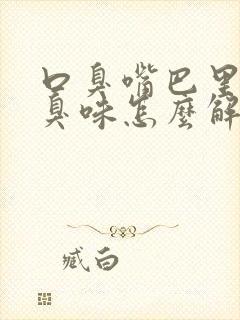 口臭嘴巴里
臭味怎麼解
臧白